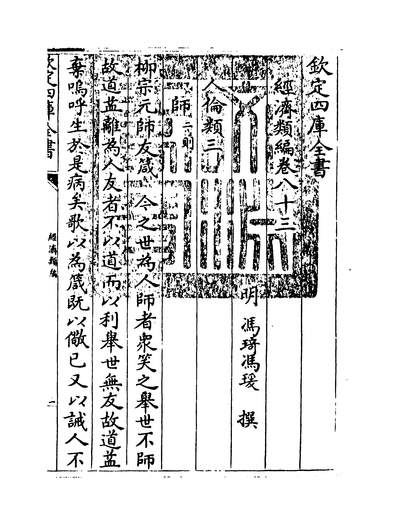 欽定四庫全書
經濟類編卷八十三
明 馮琦馮瑗 撰
人倫類三
師 二則
柳宗元師友箴 今之世為人師者衆笑之舉世不師
故道益離為人友者不以道而以利舉世無友故道益
棄嗚呼生於是病矣歌以為箴既以儆已又以誡人不
欽定四庫全書
經濟類編